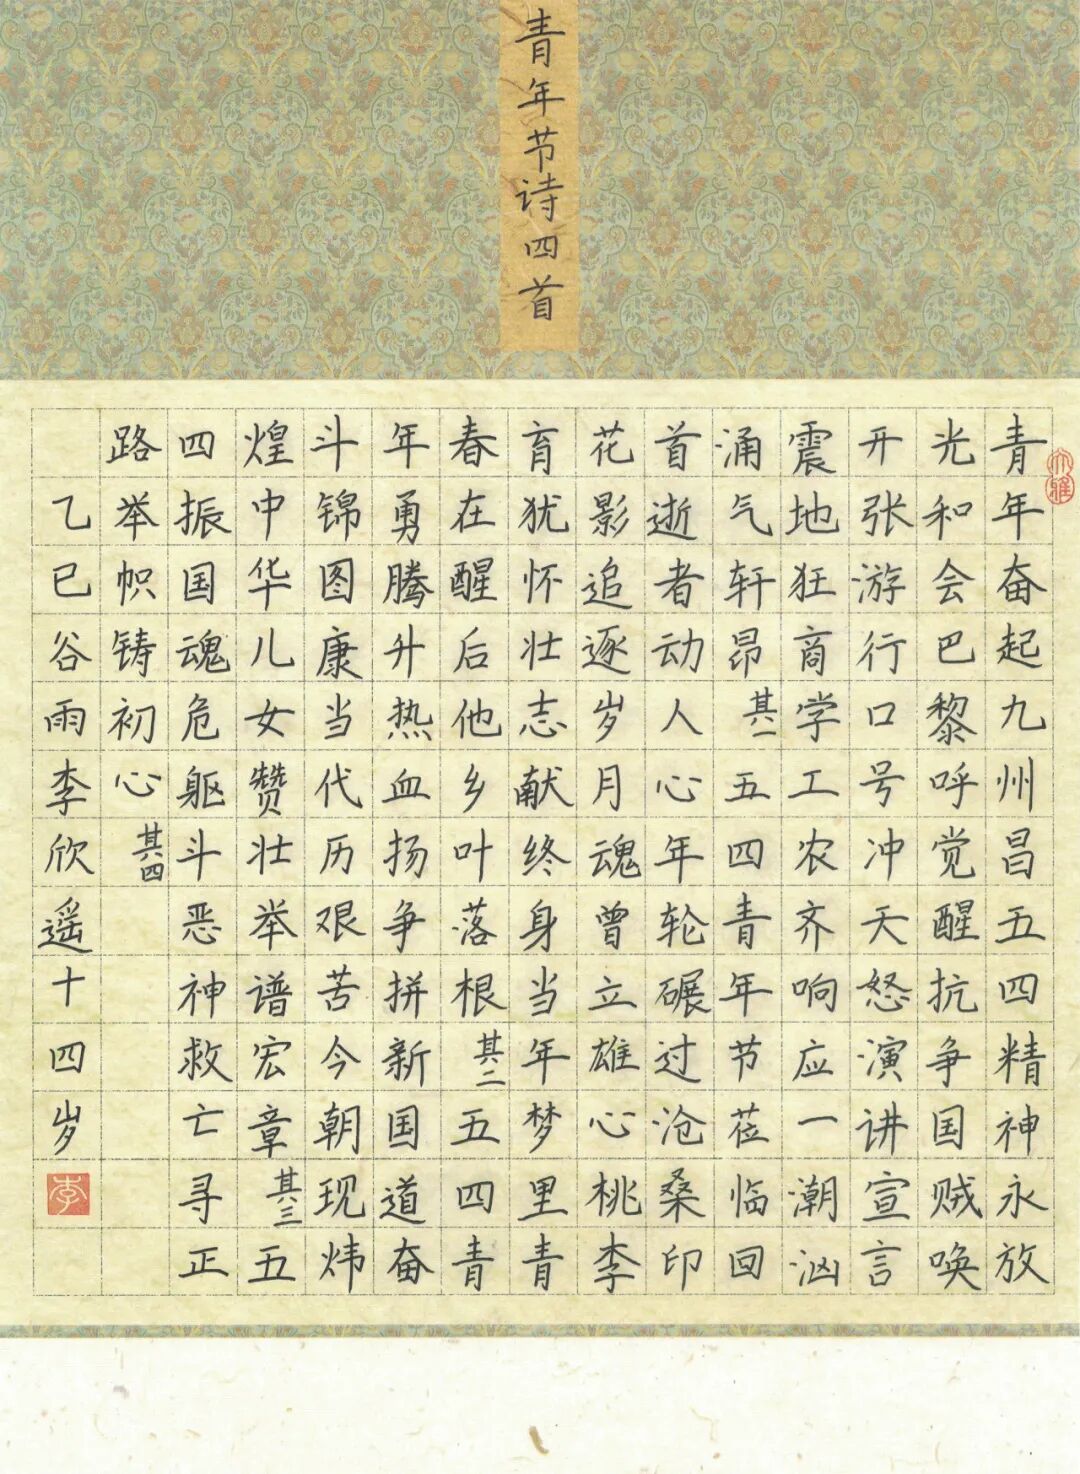 青年节诗四首
青年奋起九州昌五四精神永放
光和会巴黎呼觉醒抗争国贼唤
开张游行口号冲天怒演讲宣言
震地狂商学工农齐响应一潮汹
涌气轩昂其一五四青年节莅临回
首逝者动人心年轮碾过沧桑印
花影追逐岁月魂曾立雄心桃李
育犹怀壮志献终身当年梦里青
春在醒后他乡叶落根其二五四青
年勇腾升热血扬争拼新国道奋
斗锦图康当代历艰苦今朝现炜
煌中华儿女赞壮举谱宏章其三五
四振国魂危躯斗恶神救亡寻正
路举帜铸初心其四
乙巳谷雨李欣遥十四岁
李